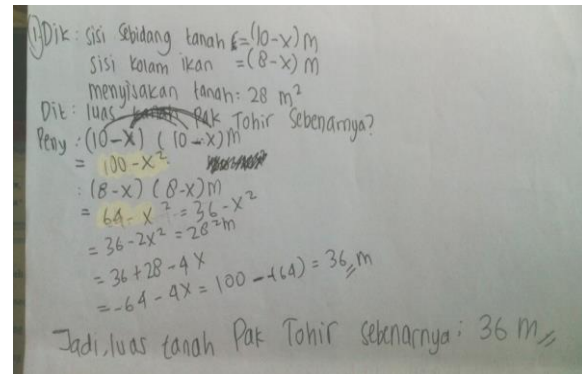 1) Dik : sisi sebidang tanah = (10-x) m
sisi kolam ikan = (8-x) m
menyisakan tanah : 28 m²
Dit : luas Pak Tohir sebenarnya?
Peny : (10-x) (10-x) m
= 100-x²
: (8-x) (8-x) m
= 64-x² = 36-x²
= 36-2x² = 28²m
= 36+28-4x
= -64-4x = 100-(64) = 36 m
Jadi, luas tanah Pak Tohir sebenarnya : 36 m